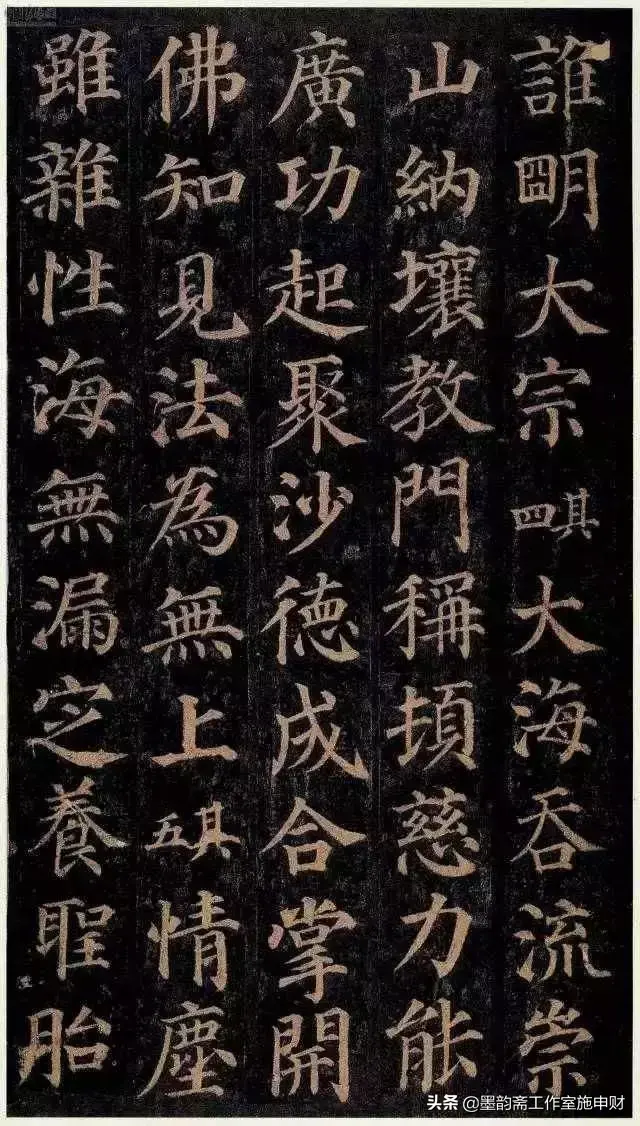 誰朙大宗其四大海吞流崇
山納壤教門稱頓慈力能
廣功起聚沙德成合掌開
佛知見法為無上其五情塵
雖雜性海無漏定養聖胎
头条 @墨韵斋工作室施申财